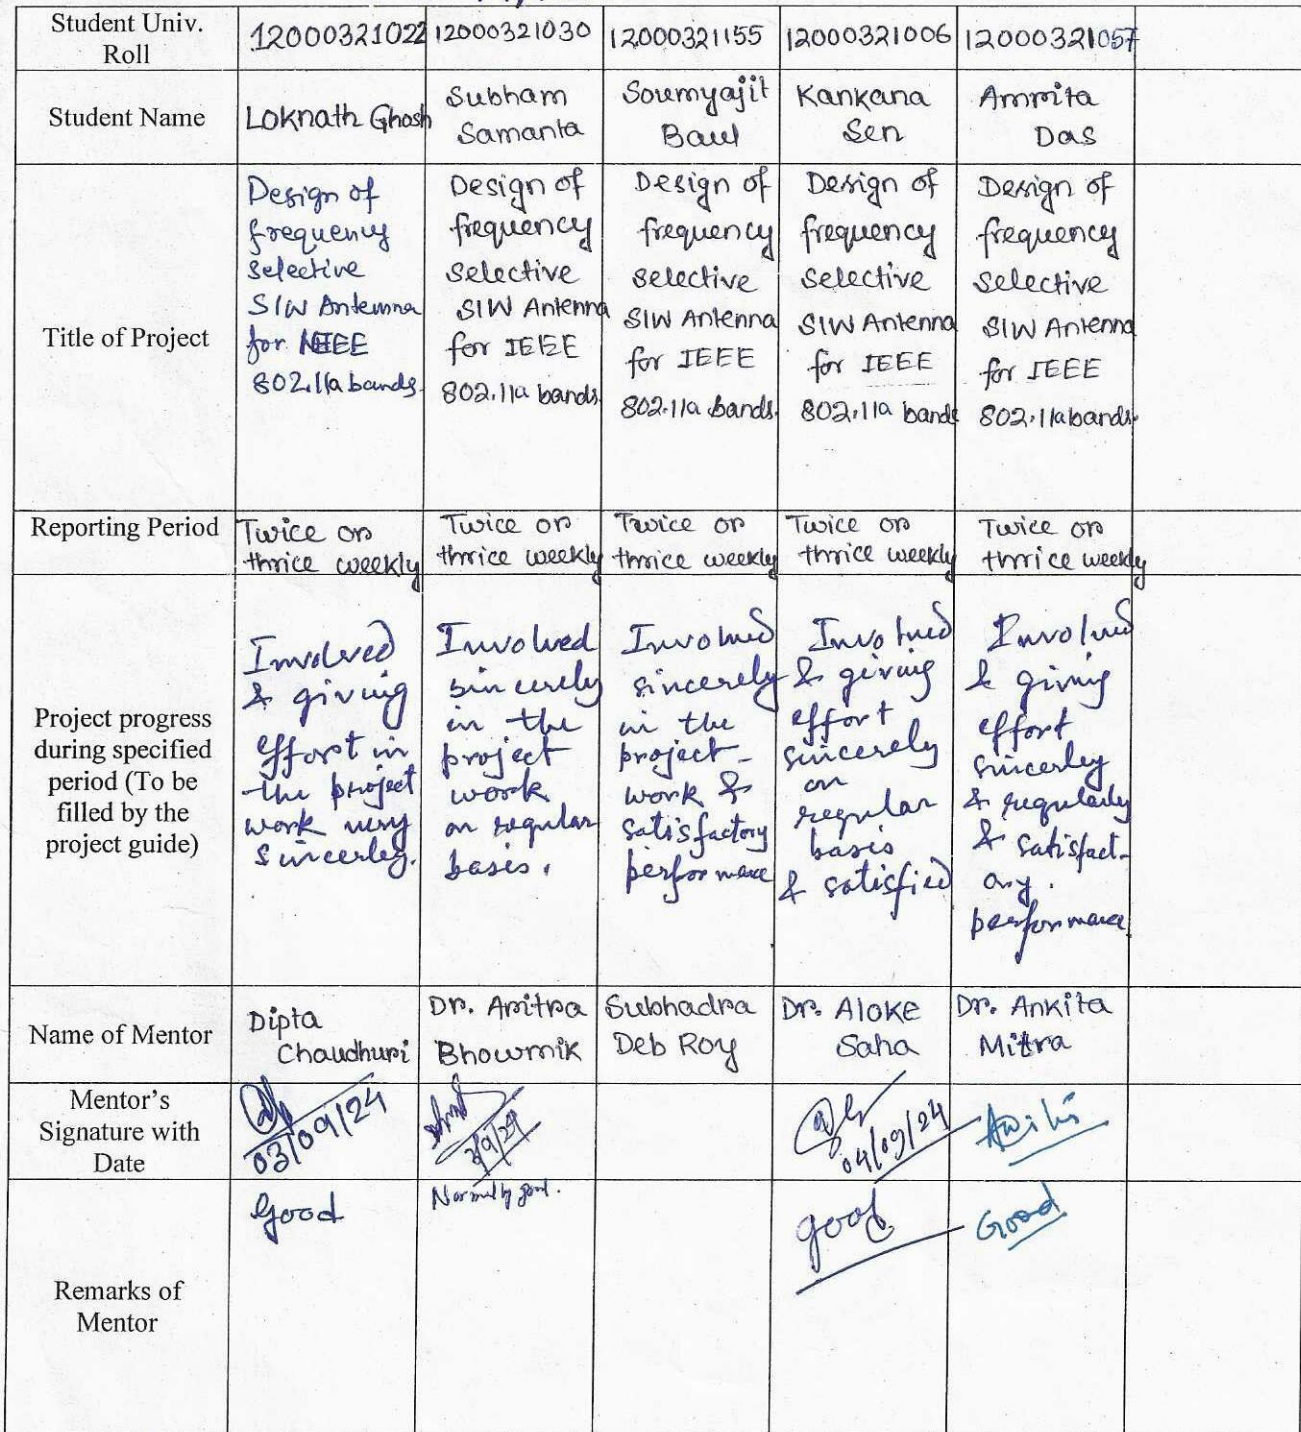 Student Univ. Roll 12000321022 12000321030 12000321155 12000321006 12000321057
Student Name Loknath Ghosh Subham Samanta Soumyajit Baul Kankana Sen Amrita Das
Title of Project
Design of
frequency
selective
SIW Antenna
for IEEE
802.11a bands.
Design of
frequency
selective
SIW Antenna
for IEEE
802.11a bands.
Design of
frequency
selective
SIW Antenna
for IEEE
802.11a bands.
Design of
frequency
selective
SIW Antenna
for IEEE
802.11a bands
Design of
frequency
selective
SIW Antenna
for IEEE
802.11a bands.
Reporting Period
Twice or
thrice weekly
Twice or
thrice weekly
Twice or
thrice weekly
Twice or
thrice weekly
Twice or
thrice weekly
Project progress
during specified
period (To be
filled by the
project guide)
Involved
& giving
effort in
the project
work very
sincerley.
Involved
sincerely
in the
project
work
on regular
basis.
Involved
sincerely
in the
project
work &
satisfactory
performance
Involved
& giving
effort
sincerely
on
regular
basis
& satisfied
Involved
& giving
effort
sincerley
& regularly
& satisfact-
ory.
performance
Name of Mentor
Dipta
Chaudhuri
Dr. Aritra
Bhowmik
Subhadra
Deb Roy
Dr. Aloke
Saha
Dr. Ankita
Mitra
Mentor's
Signature with
Date
03/09/24
3/9/24
04/09/24
Remarks of
Mentor
Good
good
Good